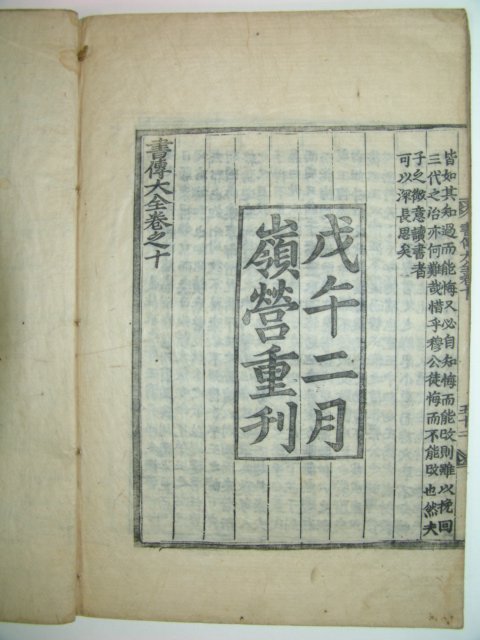 皆如其知過而能悔又必自知悔而能改則雖以挽回
三代之治亦何難哉惜乎穆公徒悔而不能改也然夫
子之微意讀書者
可以深長思矣
戊午二月
嶺營重刊
書傳大全卷之十
書傳大全卷十
五十二